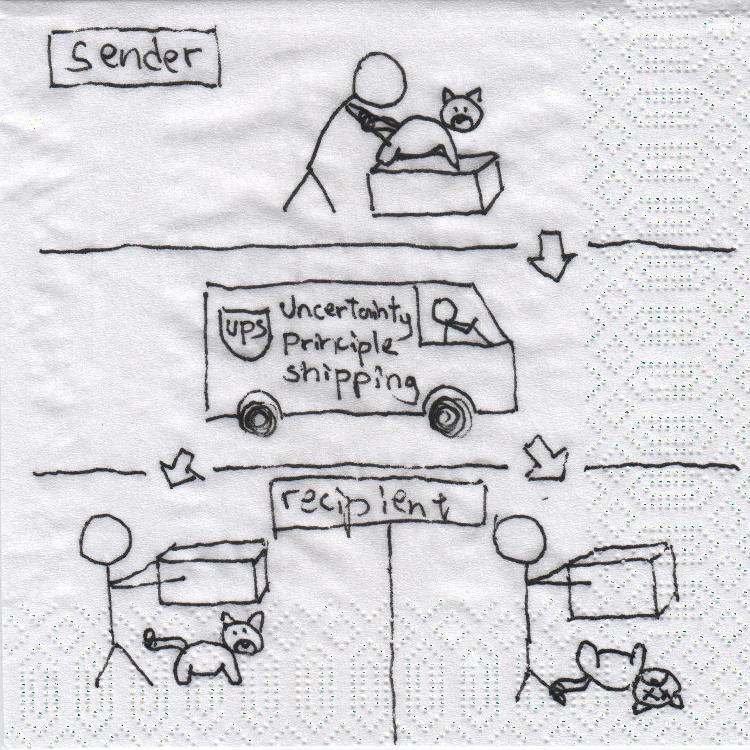 sender
ups
Uncertainty
principle
shipping
recipient